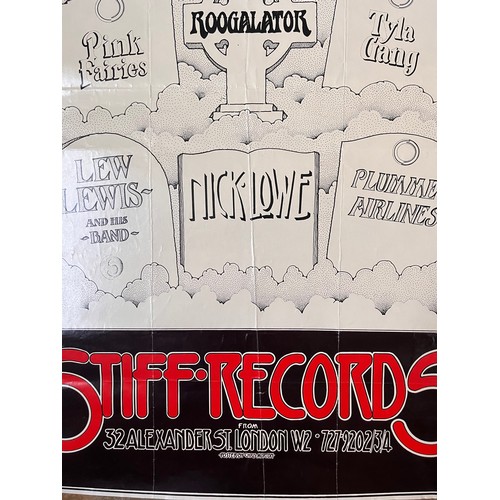 ROOGALATOR
Pink
Fairies
Tyla
Gang
LEW
LEWIS
AND HIS
BAND
6
NICK·LOWE
PLUMME
AIRLINES
STIFF·RECORDS
FROM
32 ALEXANDER ST. LONDON W2 · 727·9202/3/4